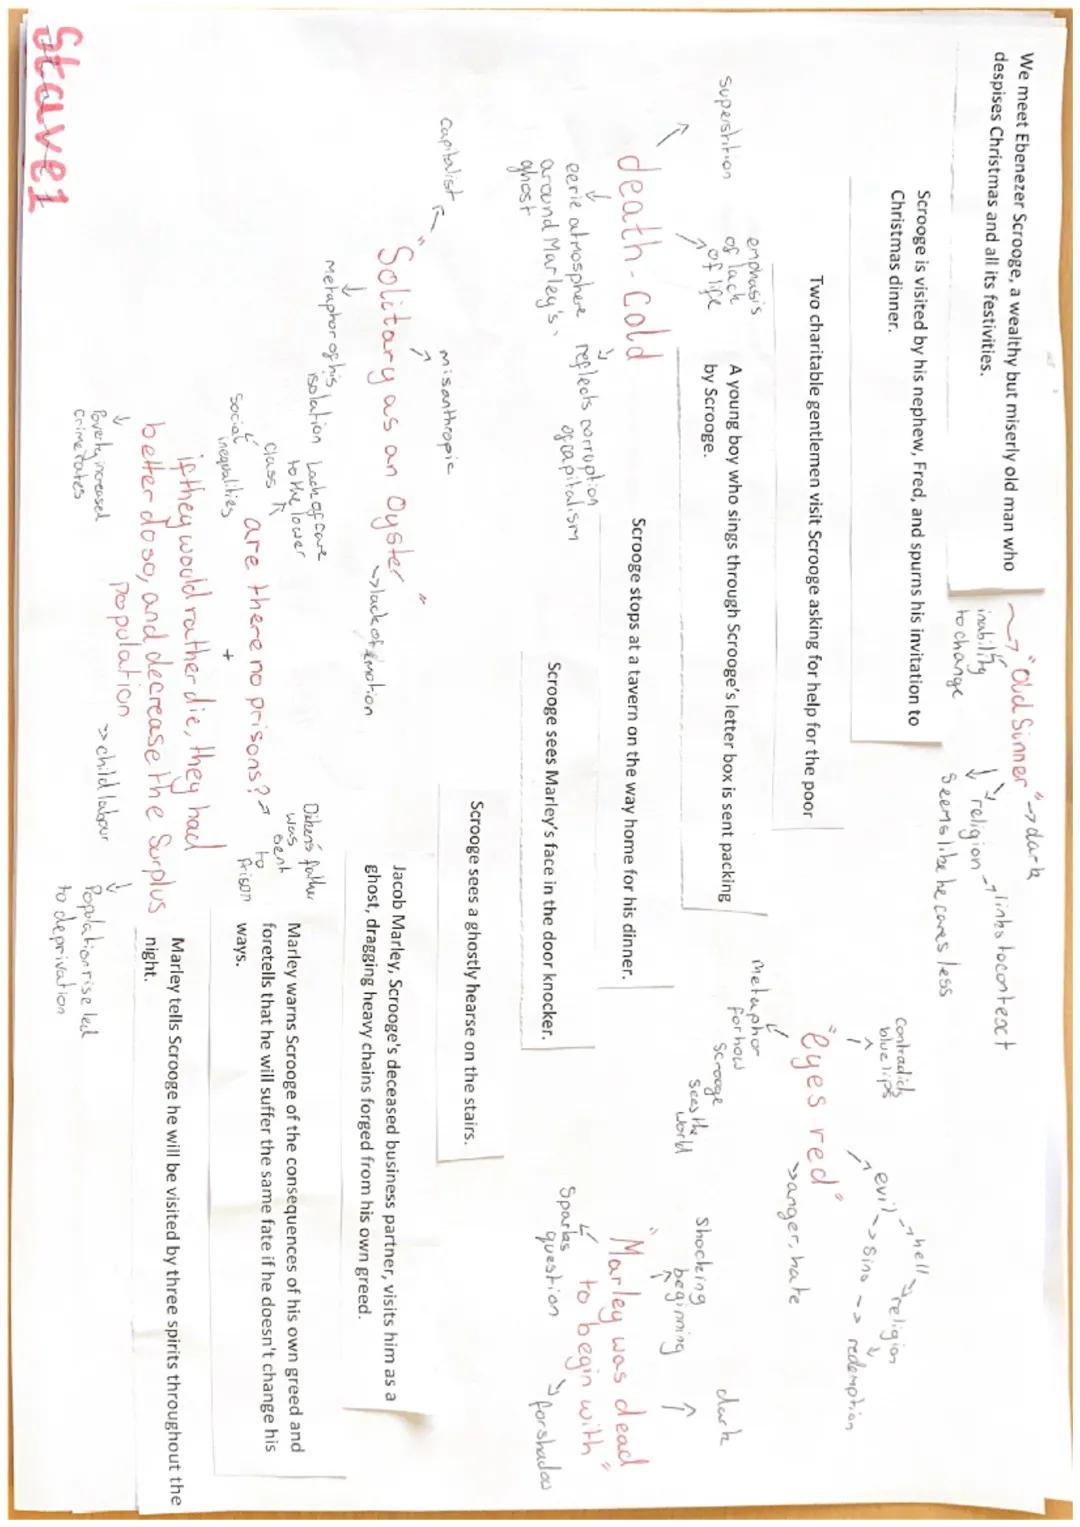 Stave 1
We meet Ebenezer Scrooge, a wealthy but miserly old man who
despises Christmas and all its festivities.
"Old Sinner" → dark
inability
to change
religion → links to context
Seems like he cares less
Scrooge is visited by his nephew, Fred, and spurns his invitation to
Christmas dinner.
Contradicts
blue lips
"eyes red"
evil → hell
religion
→ sins → redemption
→ anger, hate
metaphor
for how
Scrooge
sees the
world
Two charitable gentlemen visit Scrooge asking for help for the poor
Superstition
emphasis
of lack
of life
A young boy who sings through Scrooge's letter box is sent packing
by Scrooge.
death-cold
eerie atmosphere
around Marley's
ghost
reflects corruption
of capitalism
Shocking
beginning
dark
"Marley was dead
to begin with"
Sparks
question
forshadow
Scrooge stops at a tavern on the way home for his dinner.
Scrooge sees Marley's face in the door knocker.
Capitalist
misanthropic
"Solitary as an Oyster"
→ lack of emotion
Metaphor of his
isolation
Scrooge sees a ghostly hearse on the stairs.
Lack of care
to the lower
class
Social
inequalities
are there no prisons?
father
was
sent
to
Prison
Jacob Marley, Scrooge's deceased business partner, visits him as a
ghost, dragging heavy chains forged from his own greed.
+
if they would rather die, they had
better do so, and decrease the Surplus
Population
Poverty increased
crime rates
→ child labour
Population rise led
to deprivation
Marley warns Scrooge of the consequences of his own greed and
foretells that he will suffer the same fate if he doesn't change his
ways.
Marley tells Scrooge he will be visited by three spirits throughout the
night.